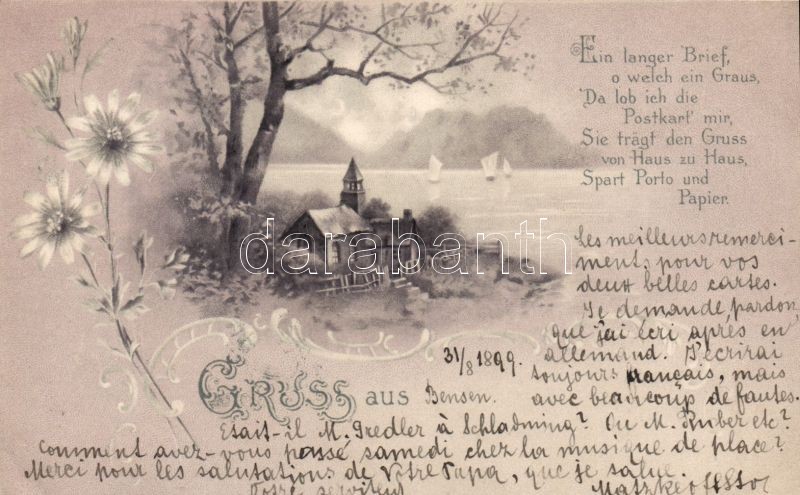 Ein langer Brief,
o welch ein Graus,
'Da lob ich die
Postkart' mir,
Sie trägt den Gruss
von Haus zu Haus,
Spart Porto und
Papier.
Les meilleurs remerci-
ments pour vos
deux belles cartes.
Je demande pardon,
que j'ai écri après en
allemand. J'écrirai
toujours français, mais
avec beaucoup de fautes.
31/8 1899.
GRUSS aus Bensen.
Etait-il M. Gredler à Schladming? Ou M. Huber etc?
Comment avez-vous passé samedi chez la musique de place?
Merci pour les salutations de Votre Papa, que je salue.
Votre serviteur
darabanth